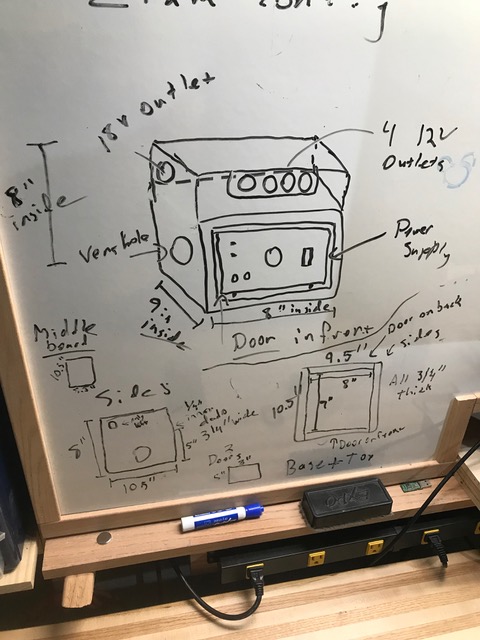 18V outlet
4 12V
Outlets
8"
inside
Vent hole
Power
Supply
9"
inside
8" inside
Door in front
Door on back
Middle
board
10.5"
9.5"
Sides
8"
5"
10.5"
3/4" wide
2
Doors
5"
8"
9.5"
sides
8"
10.5"
7"
All 3/4"
thick
Base + Top